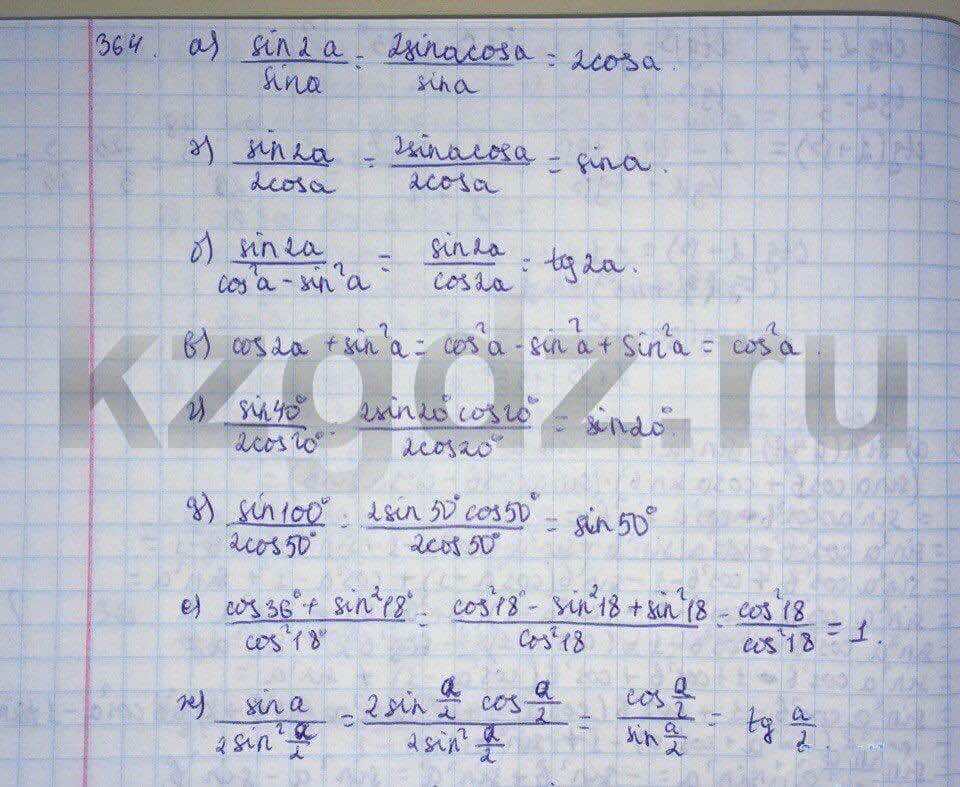 364. а) sin2a/sina = 2sinacosa/sina = 2cosa.
г) sin2a/2cosa = 2sinacosa/2cosa = sina.
б) sin2a/cos²a - sin²a = sin2a/cos2a = tg2a.
в) cos2a + sin²a = cos²a - sin²a + sin²a = cos²a.
г) sin40°/2cos20° = 2sin20°cos20°/2cos20° = sin20°.
д) sin100°/2cos50° = 2sin50°cos50°/2cos50° = sin50°
е) cos36° + sin²18°/cos²18° = cos²18° - sin²18 + sin²18/cos²18 = cos²18/cos²18 = 1.
ж) sina/2sin² a/2 = 2sin a/2 cos a/2/2sin² a/2 = cos a/2/sin a/2 = tg a/2.
kzgdz.ru